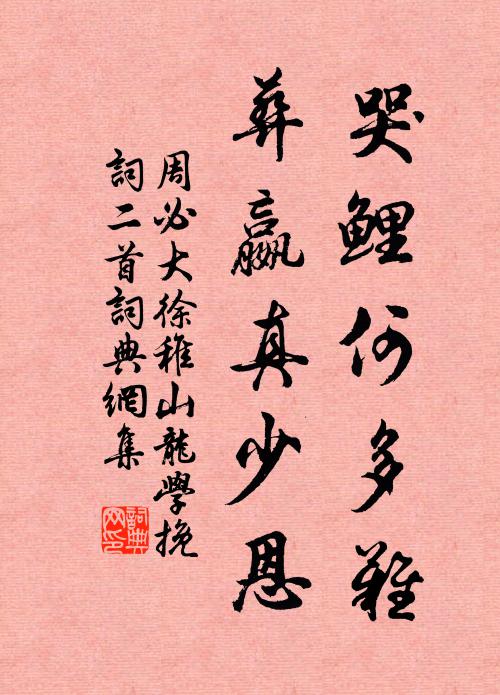 哭鯉何多難
葬嬴真少恩
周必大徐稚山龍學挽
詞二首詞典網集
詞典網印